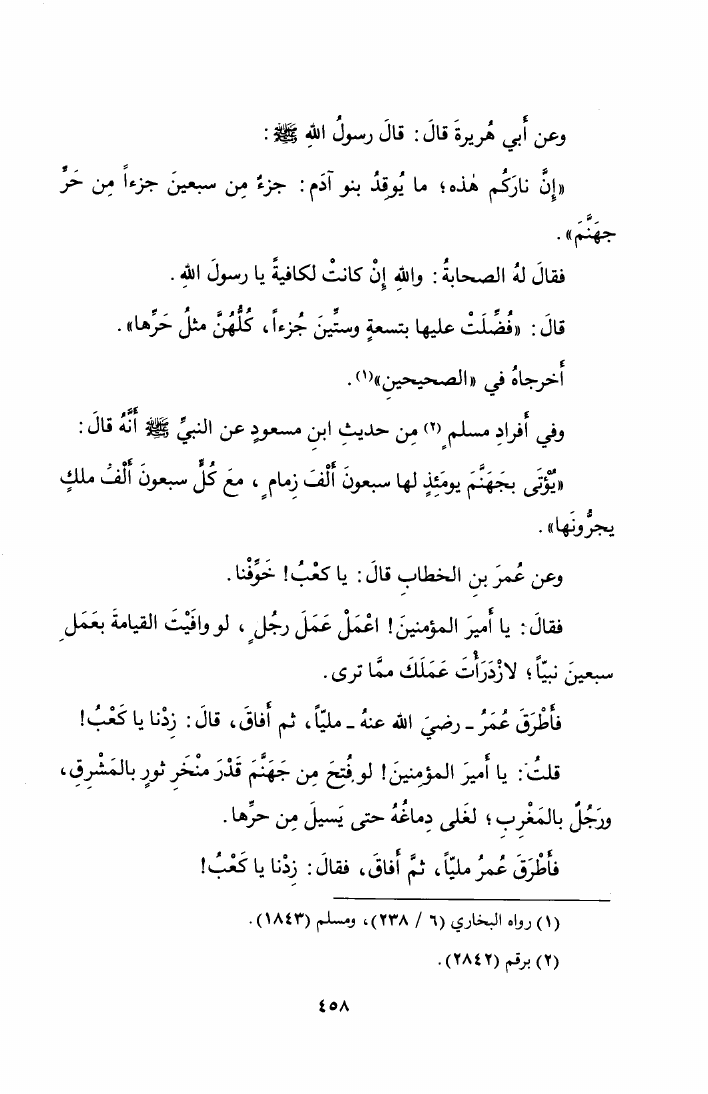 وعن أَبي هُريرةَ قالَ: قالَ رسولُ اللهِ ﷺ:
«إِنَّ نارَكُم هٰذه؛ ما يُوقِدُ بنو آدَم: جزءٌ مِن سبعينَ جزءاً مِن حَرِّ
جهَنَّمَ».
فقالَ لهُ الصحابةُ: واللهِ إِنْ كانَتْ لكافيةً يا رسولَ اللهِ.
قالَ: «فُضِّلَتْ عليها بتسعةٍ وستِّينَ جُزءاً، كُلُّهُنَّ مثلُ حَرِّها».
أَخرجاهُ في «الصحيحينِ»(١).
وفي أَفرادِ مسلمٍ(٢) مِن حديثِ ابنِ مسعودٍ عن النبيِّ ﷺ أَنَّهُ قالَ:
«يُؤْتَى بجَهَنَّمَ يومَئِذٍ لها سبعونَ أَلْفَ زِمامٍ، معَ كُلٍّ سبعونَ أَلْفُ ملكٍ
يجرُّونَها».
وعن عُمرَ بنِ الخطابِ قالَ: يا كعْبُ! خَوِّفْنا.
فقالَ: يا أَميرَ المؤمنينَ! اعْمَلْ عَمَلَ رجُلٍ، لو وافَيْتَ القيامةَ بعَمَلِ
سبعينَ نبيّاً؛ لازْدَرَأْتَ عَمَلَكَ ممَّا ترى.
فأَطْرَقَ عُمَرُ ـ رضيَ الله عنهُ ـ مليّاً، ثم أَفاقَ، قالَ: زِدْنا يا كَعْبُ!
قلتُ: يا أَميرَ المؤمِنينَ! لو فُتحَ مِن جَهَنَّمَ قَدْرَ منْخَرِ ثورٍ بالمَشْرِقِ،
ورَجُلٌ بالمَغْرِبِ؛ لغَلى دِماغُهُ حتى يَسيلَ مِن حرِّها.
فأَطْرَقَ عمرُ مليّاً، ثمَّ أَفاقَ، فقالَ: زِدْنا يا كَعْبُ!
(١) رواه البخاري (٦ / ٢٣٨)، ومسلم (١٨٤٣).
(٢) برقم (٢٨٤٢).
٤٥٨